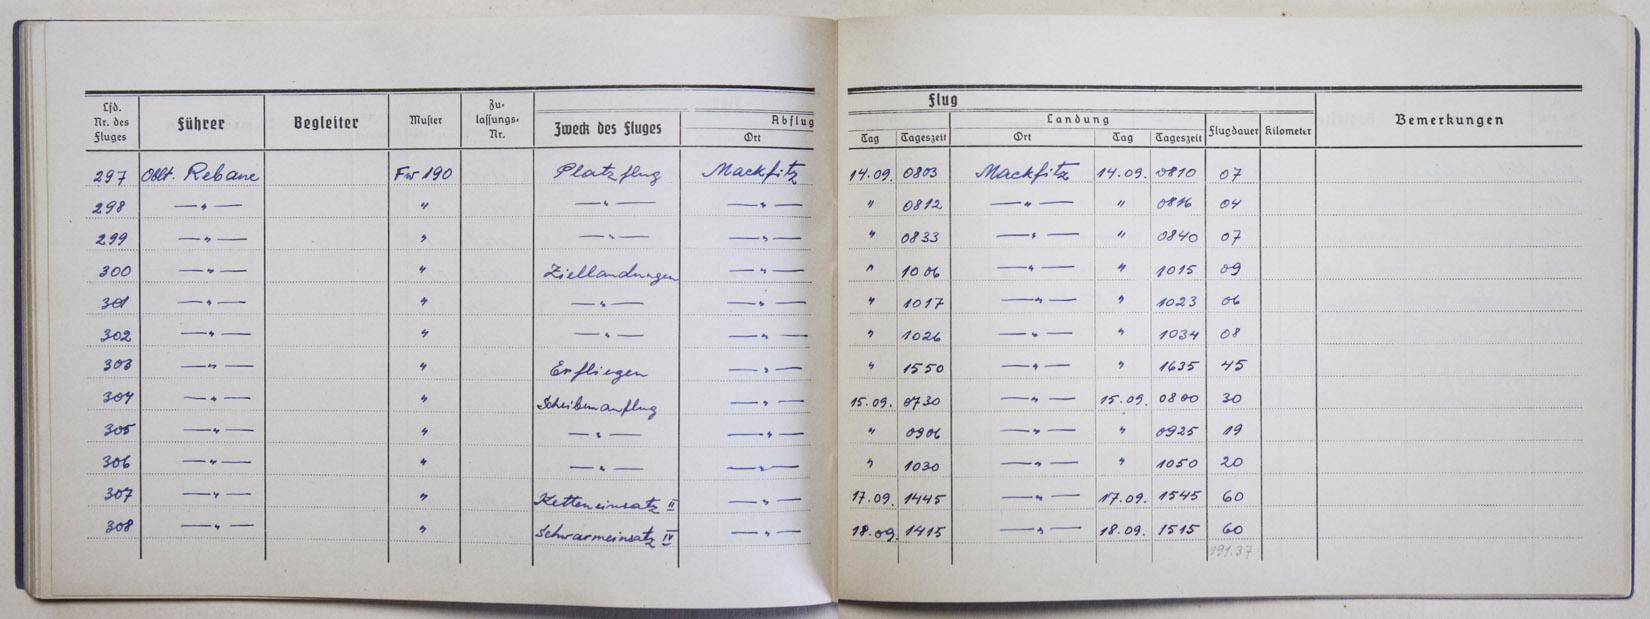 Lfd. Nr. des Fluges Führer Begleiter Muster Zulassungs-Nr. Zweck des Fluges Abflug Ort
Flug
Tag Tageszeit Landung Ort Tag Tageszeit Flugdauer Kilometer Bemerkungen
297 Oblt. Rebane Fw 190 Platzflug Mackfitz 14.09. 0803 Mackfitz 14.09. 0810 07
298 —„— „ —„— —„— „ 0812 —„— „ 0816 04
299 —„— „ —„— —„— „ 0833 —„— „ 0840 07
300 —„— „ Ziellandungen —„— „ 1006 —„— „ 1015 09
301 —„— „ —„— —„— „ 1017 —„— „ 1023 06
302 —„— „ —„— —„— „ 1026 —„— „ 1034 08
303 —„— „ Erfliegen —„— „ 1550 —„— „ 1635 45
304 —„— „ Scheibenanflug —„— 15.09. 0730 —„— 15.09. 0800 30
305 —„— „ —„— —„— „ 0906 —„— „ 0925 19
306 —„— „ —„— —„— „ 1030 —„— „ 1050 20
307 —„— „ Ketteneinsatz II —„— 17.09. 1445 —„— 17.09. 1545 60
308 —„— „ Schwarmeinsatz IV —„— 18.09. 1415 —„— 18.09. 1515 60
191.37